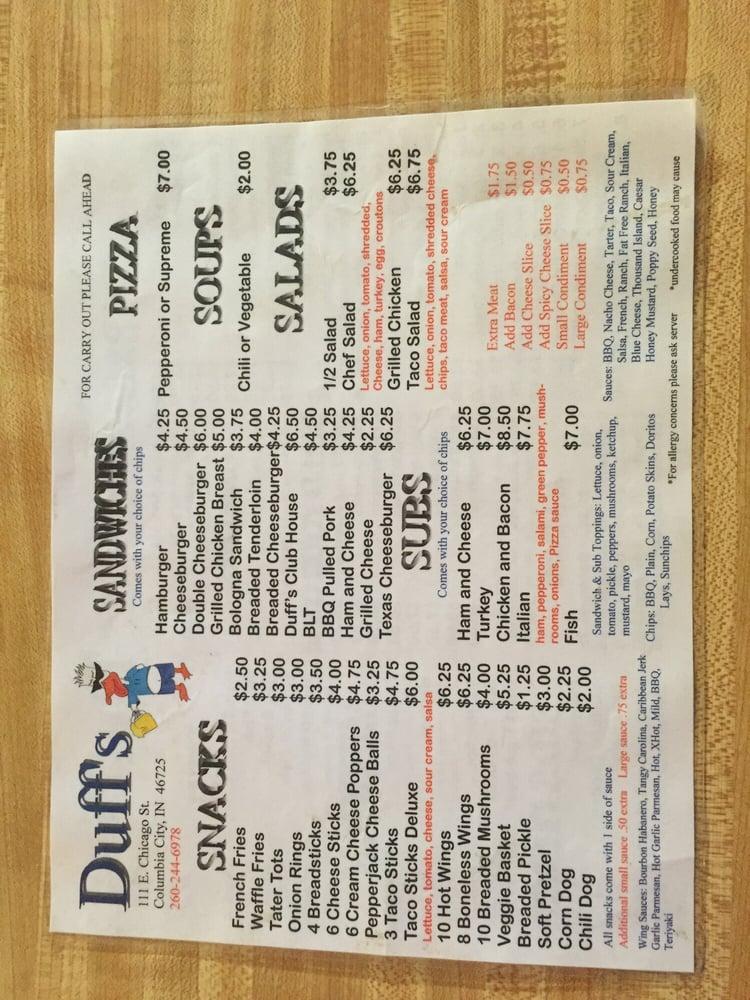 Duff's
111 E. Chicago St.
Columbia City, IN 46725
260-244-6978
SNACKS
French Fries $2.50
Waffle Fries $3.25
Tater Tots $3.00
Onion Rings $3.00
4 Breadsticks $3.50
6 Cheese Sticks $4.00
6 Cream Cheese Poppers $4.75
Pepperjack Cheese Balls $3.25
3 Taco Sticks $4.75
Taco Sticks Deluxe $6.00
Lettuce, tomato, cheese, sour cream, salsa
10 Hot Wings $6.25
8 Boneless Wings $6.25
10 Breaded Mushrooms $4.00
Veggie Basket $5.25
Breaded Pickle $1.25
Soft Pretzel $3.00
Corn Dog $2.25
Chili Dog $2.00
All snacks come with 1 side of sauce
Additional small sauce .50 extra Large sauce .75 extra
Wing Sauces: Bourbon Habanero, Tangy Carolina, Caribbean Jerk
Garlic Parmesan, Hot Garlic Parmesan, Hot, XHot, Mild, BBQ,
Teriyaki
SANDWICHES
Comes with your choice of chips
Hamburger $4.25
Cheeseburger $4.50
Double Cheeseburger $6.00
Grilled Chicken Breast $5.00
Bologna Sandwich $3.75
Breaded Tenderloin $4.00
Breaded Cheeseburger $4.25
Duff's Club House $6.50
BLT $4.50
BBQ Pulled Pork $3.25
Ham and Cheese $4.25
Grilled Cheese $2.25
Texas Cheeseburger $6.25
SUBS
Comes with your choice of chips
Ham and Cheese $6.25
Turkey $7.00
Chicken and Bacon $8.50
Italian $7.75
ham, pepperoni, salami, green pepper, mush-
rooms, onions, Pizza sauce
Fish $7.00
Sandwich & Sub Toppings: Lettuce, onion,
tomato, pickle, peppers, mushrooms, ketchup,
mustard, mayo
Chips: BBQ, Plain, Corn, Potato Skins, Doritos
Lays, Sunchips
FOR CARRY OUT PLEASE CALL AHEAD
PIZZA
Pepperoni or Supreme $7.00
SOUPS
Chili or Vegetable $2.00
SALADS
1/2 Salad $3.75
Chef Salad $6.25
Lettuce, onion, tomato, shredded,
Cheese, ham, turkey, egg, croutons
Grilled Chicken $6.25
Taco Salad $6.75
Lettuce, onion, tomato, shredded cheese,
chips, taco meat, salsa, sour cream
Extra Meat $1.75
Add Bacon $1.50
Add Cheese Slice $0.50
Add Spicy Cheese Slice $0.75
Small Condiment $0.50
Large Condiment $0.75
Sauces: BBQ, Nacho Cheese, Tarter, Taco, Sour Cream,
Salsa, French, Ranch, Fat Free Ranch, Italian,
Blue Cheese, Thousand Island, Caesar
Honey Mustard, Poppy Seed, Honey
*For allergy concerns please ask server *undercooked food may cause